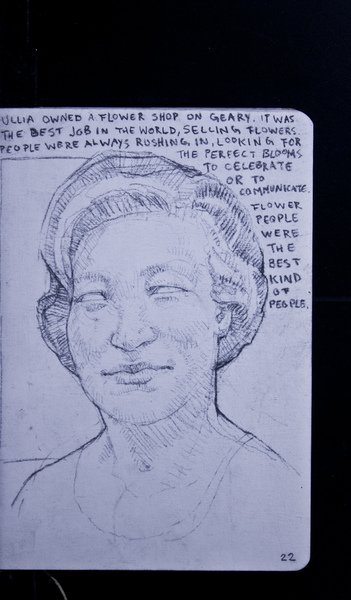 ULLIA OWNED A FLOWER SHOP ON GEARY. IT WAS
THE BEST JOB IN THE WORLD, SELLING FLOWERS.
PEOPLE WERE ALWAYS RUSHING IN, LOOKING FOR
THE PERFECT BLOOMS
TO CELEBRATE
OR TO
COMMUNICATE.
FLOWER
PEOPLE
WERE
THE
BEST
KIND
OF
PEOPLE.
22